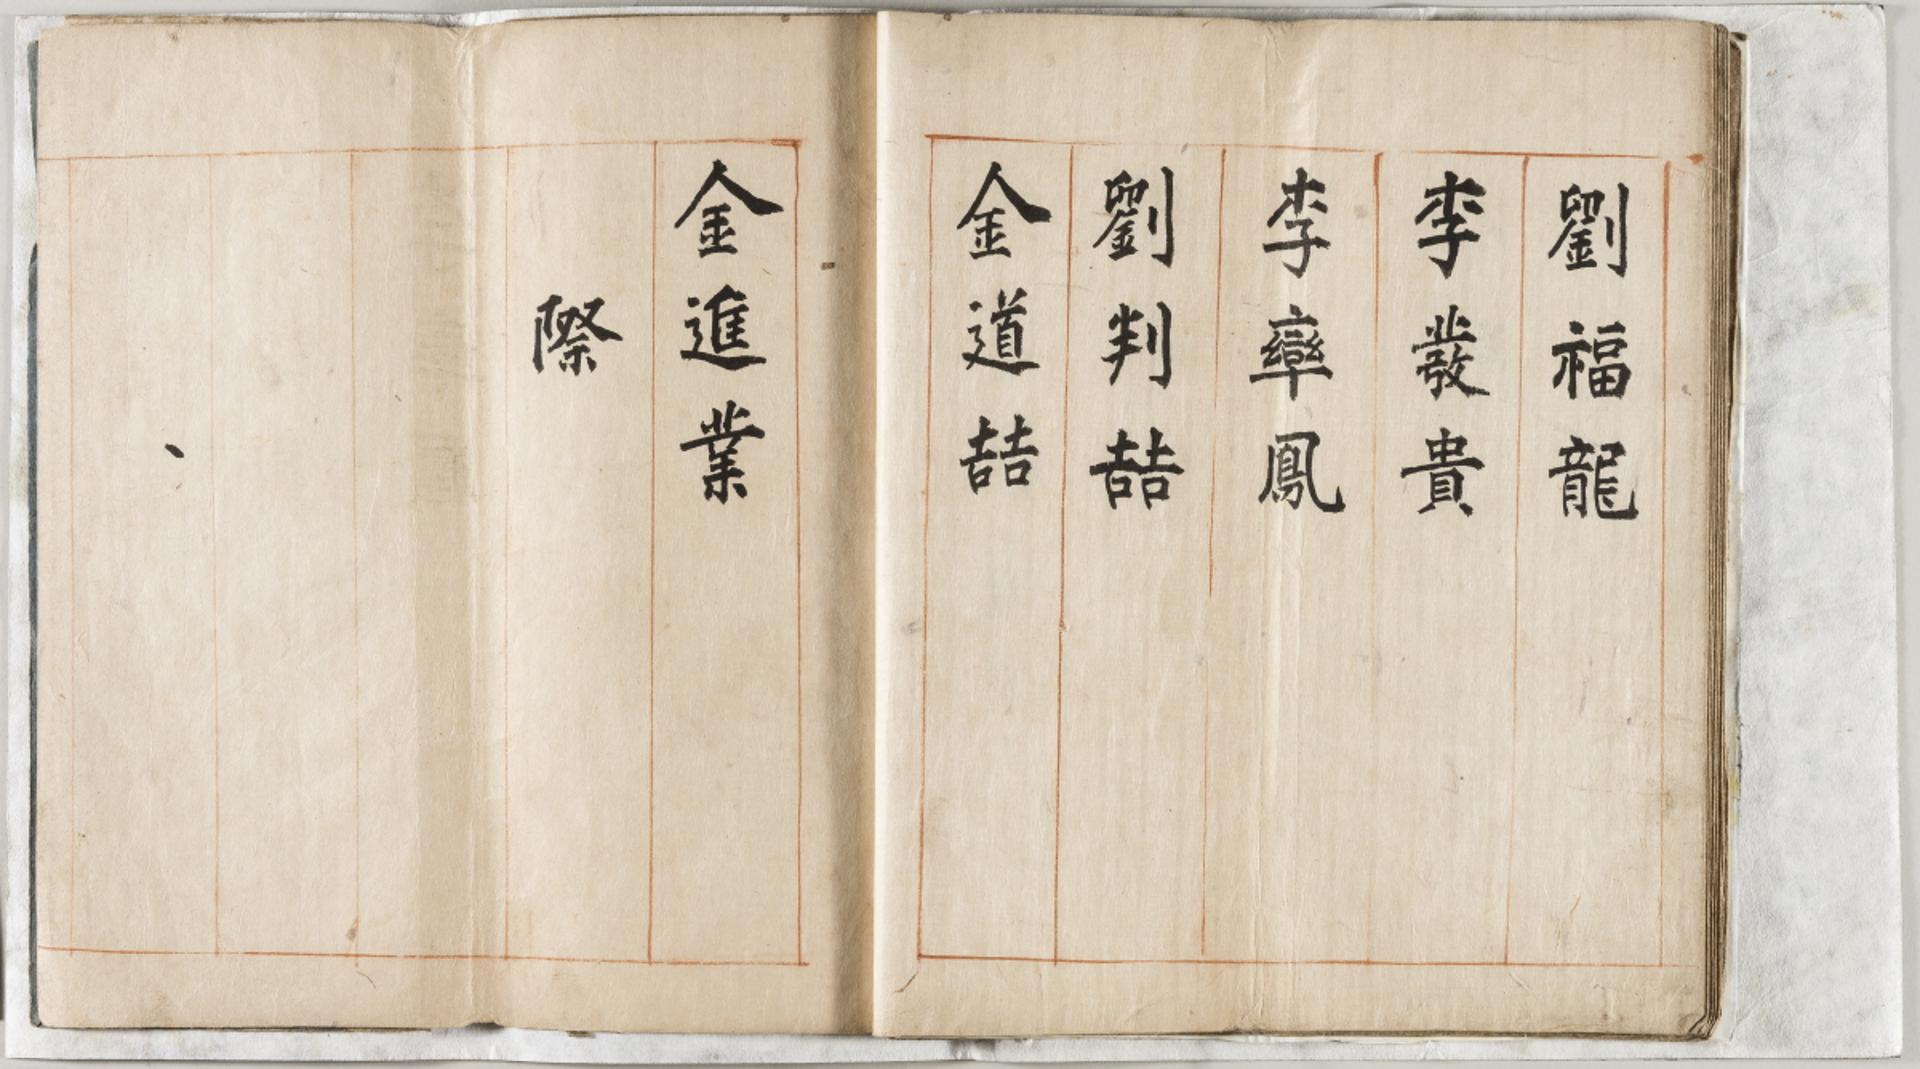 劉福龍
李發貴
李鸞鳳
劉判喆
金道喆
金進業
際